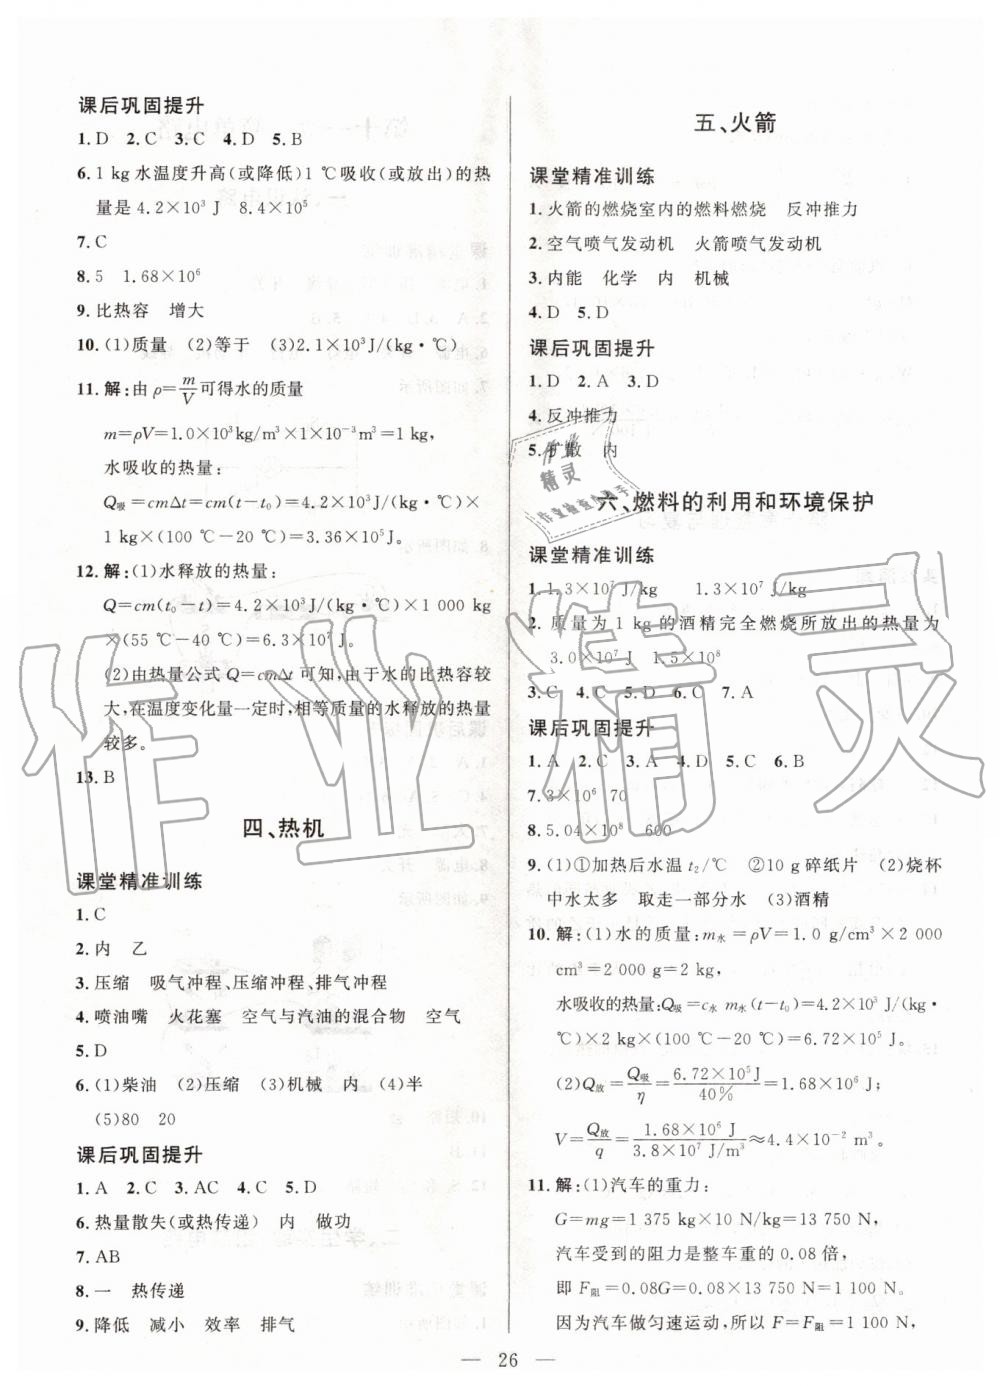 课后巩固提升
1. D  2. C  3. C  4. D  5. B
6. 1 kg水温度升高(或降低)1 ℃吸收(或放出)的热
量是4.2×10³ J  8.4×10⁵
7. C
8. 5  1.68×10⁶
9. 比热容  增大
10. (1)质量  (2)等于  (3)2.1×10³J/(kg·℃)
11. 解:由ρ=m/V可得水的质量
m=ρV=1.0×10³kg/m³×1×10⁻³m³=1 kg,
水吸收的热量:
Q吸=cmΔt=cm(t-t₀)=4.2×10³J/(kg·℃)×
1 kg×(100 ℃-20 ℃)=3.36×10⁵J。
12. 解:(1)水释放的热量:
Q=cm(t₀-t)=4.2×10³J/(kg·℃)×1 000 kg
×(55 ℃-40 ℃)=6.3×10⁷J。
(2)由热量公式Q=cmΔt可知,由于水的比热容较
大,在温度变化量一定时,相等质量的水释放的热量
较多。
13. B
四、热机
课堂精准训练
1. C
2. 内  乙
3. 压缩  吸气冲程、压缩冲程、排气冲程
4. 喷油嘴  火花塞  空气与汽油的混合物  空气
5. D
6. (1)柴油  (2)压缩  (3)机械  内  (4)半
(5)80  20
课后巩固提升
1. A  2. C  3. AC  4. C  5. D
6. 热量散失(或热传递)  内  做功
7. AB
8. 一  热传递
9. 降低  减小  效率  排气
五、火箭
课堂精准训练
1. 火箭的燃烧室内的燃料燃烧  反冲推力
2. 空气喷气发动机  火箭喷气发动机
3. 内能  化学  内  机械
4. D  5. D
课后巩固提升
1. D  2. A  3. D
4. 反冲推力
5. 扩散  内
六、燃料的利用和环境保护
课堂精准训练
1. 1.3×10⁷J/kg  1.3×10⁷J/kg
2. 质量为1 kg的酒精完全燃烧所放出的热量为
3.0×10⁷J  1.5×10⁸
3. C  4. C  5. D  6. C  7. A
课后巩固提升
1. A  2. C  3. A  4. D  5. C  6. B
7. 3×10⁶  70
8. 5.04×10⁸  600
9. (1)①加热后水温t₂/℃  ②10 g碎纸片  (2)烧杯
中水太多  取走一部分水  (3)酒精
10. 解:(1)水的质量:m水=ρV=1.0 g/cm³×2 000
cm³=2 000 g=2 kg,
水吸收的热量:Q吸=c水 m水(t-t₀)=4.2×10³J/(kg·
℃)×2 kg×(100 ℃-20 ℃)=6.72×10⁵J。
(2)Q放=Q吸/η=6.72×10⁵J/40%=1.68×10⁶J;
V=Q放/q=1.68×10⁶ J/3.8×10⁷ J/m³≈4.4×10⁻² m³。
11. 解:(1)汽车的重力:
G=mg=1 375 kg×10 N/kg=13 750 N,
汽车受到的阻力是整车重的0.08倍,
即F阻=0.08G=0.08×13 750 N=1 100 N。
因为汽车做匀速运动,所以F=F阻=1 100 N,
— 26 —
作业精灵
作业
精灵
作业检查小助手